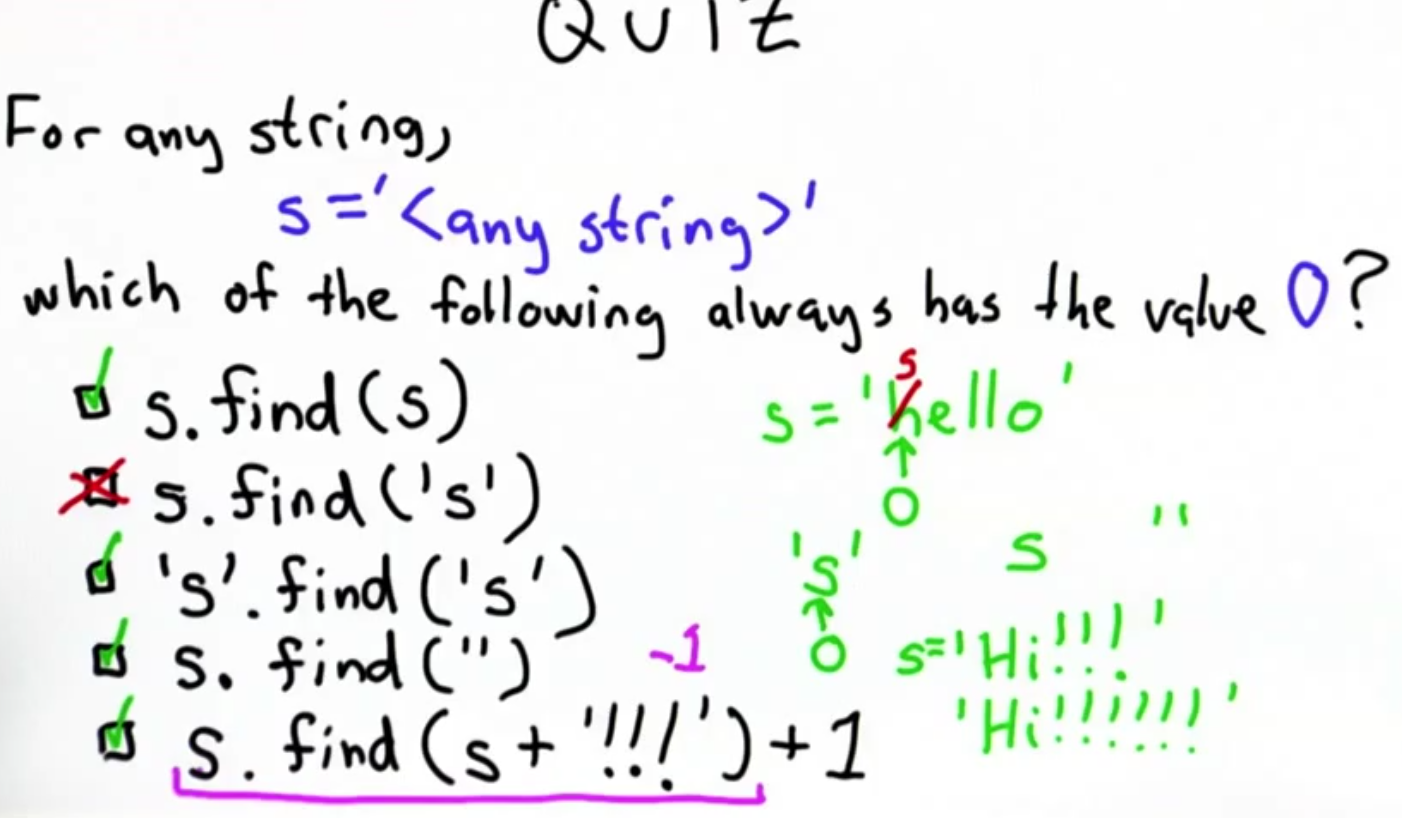 QUIZ
For any string,
s='<any string>'
which of the following always has the value 0?
s.find(s)
s='hello'
s
0
s.find('s')
's'.find('s')
's'
0
s ''
s.find('')
-1
s='Hi!!!'
s.find(s+'!!!')+1
'Hi!!!!!!'